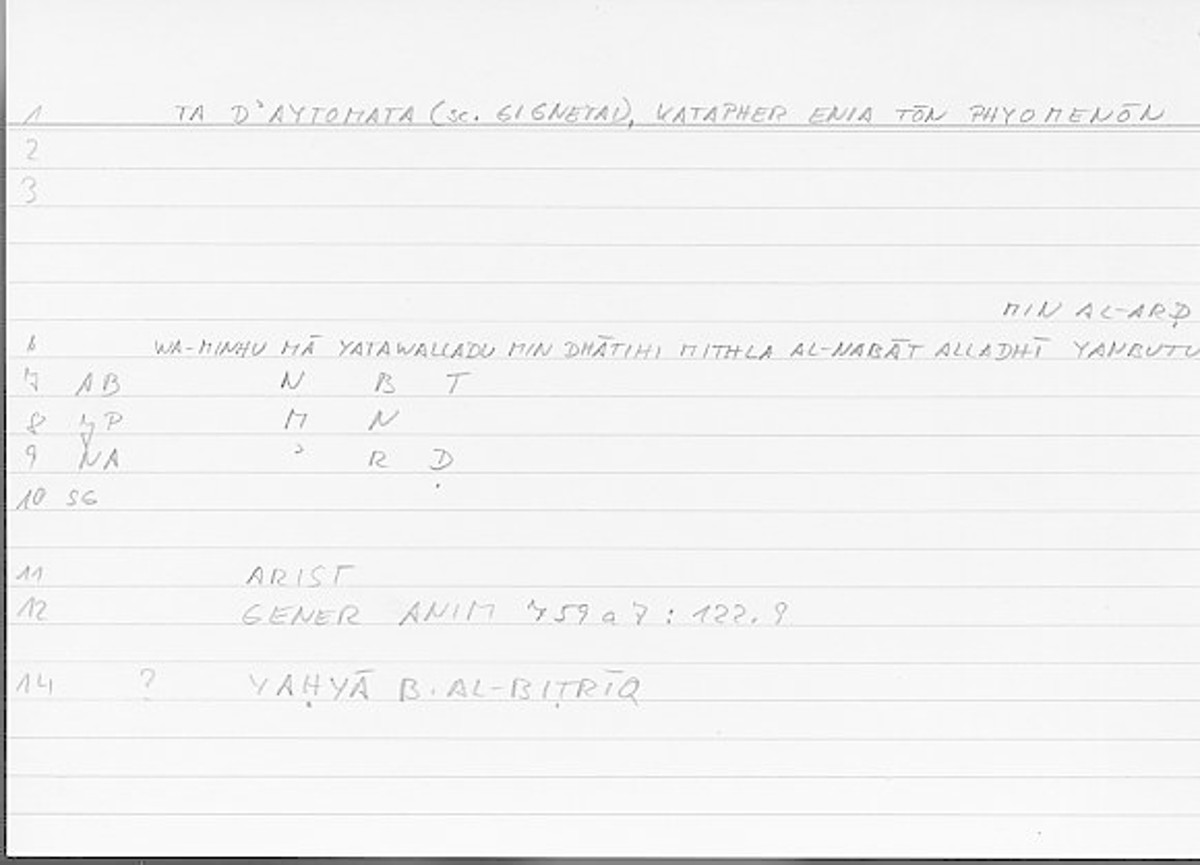 1 TA D'AYTOMATA (sc. GIGNETAI), KATAPHER ENIA TŌN PHYOMENŌN
2
3
MIN AL-ARḌ
6 WA-MINHU MĀ YATAWALLADU MIN DHĀTIHI MITHLA AL-NABĀT ALLADHĪ YANBUTU
7 AB N B T
8 M N
9 NA ʾ R Ḍ
10 SG
11 ARIST
12 GENER ANIM 759 a 7 : 122.9
14 ? YAḤYĀ B. AL-BIṬRĪQ